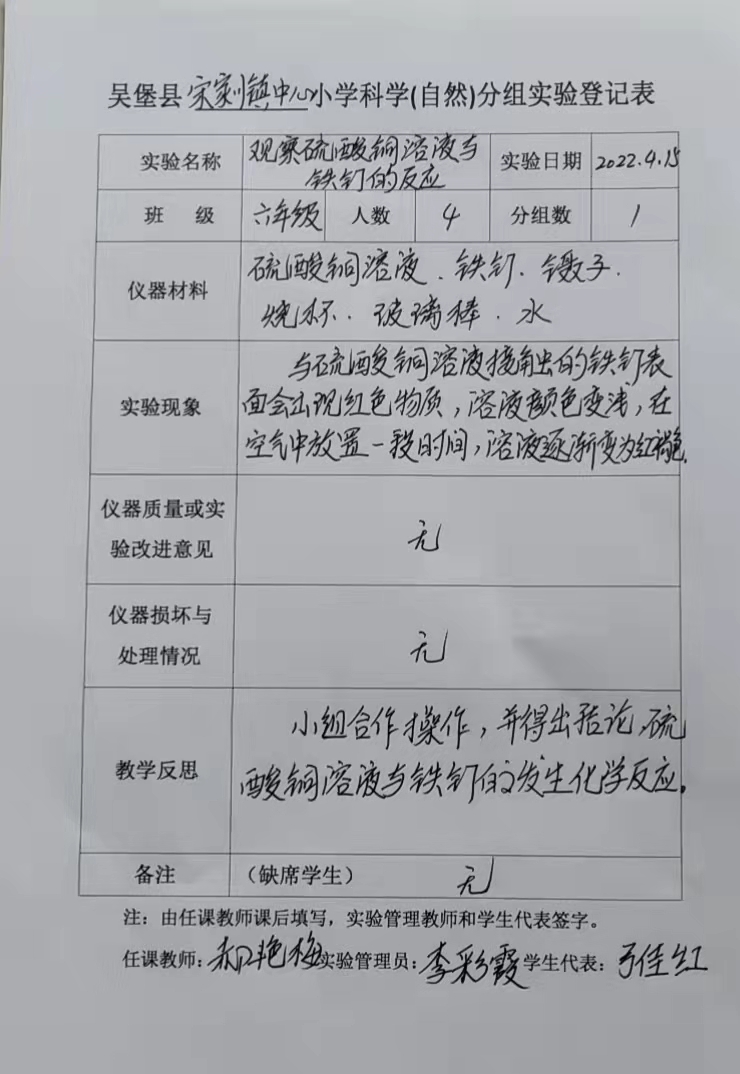 吴堡县宋家川镇中心小学科学(自然)分组实验登记表
实验名称 观察硫酸铜溶液与 实验日期 2022.4.15
铁钉的反应
班 级 六年级 人数 4 分组数 1
仪器材料 硫酸铜溶液、铁钉、镊子、
烧杯、玻璃棒、水
实验现象 与硫酸铜溶液接触出的铁钉表
面会出现红色物质，溶液颜色变浅，在
空气中放置一段时间，溶液逐渐变为红褐色.
仪器质量或实
验改进意见 无
仪器损坏与
处理情况 无
教学反思 小组合作操作，并得出结论，硫
酸铜溶液与铁钉的发生化学反应。
备注 （缺席学生） 无
注：由任课教师课后填写，实验管理教师和学生代表签字。
任课教师：艳梅 实验管理员：李彩霞 学生代表：弓佳红